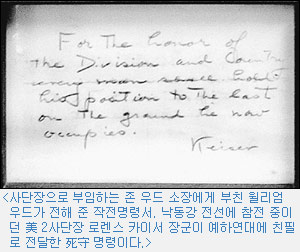 For The honor of
The Division and Country
every man shall hold
his position to the last
on the ground he now
occupies.
Keiser
<사단장으로 부임하는 존 우드 소장에게 부친 윌리엄
우드가 전해 준 작전명령서. 낙동강 전선에 참전 중이
던 美 2사단장 로렌스 카이서 장군이 예하연대에 친필
로 전달한 死守 명령이다.>